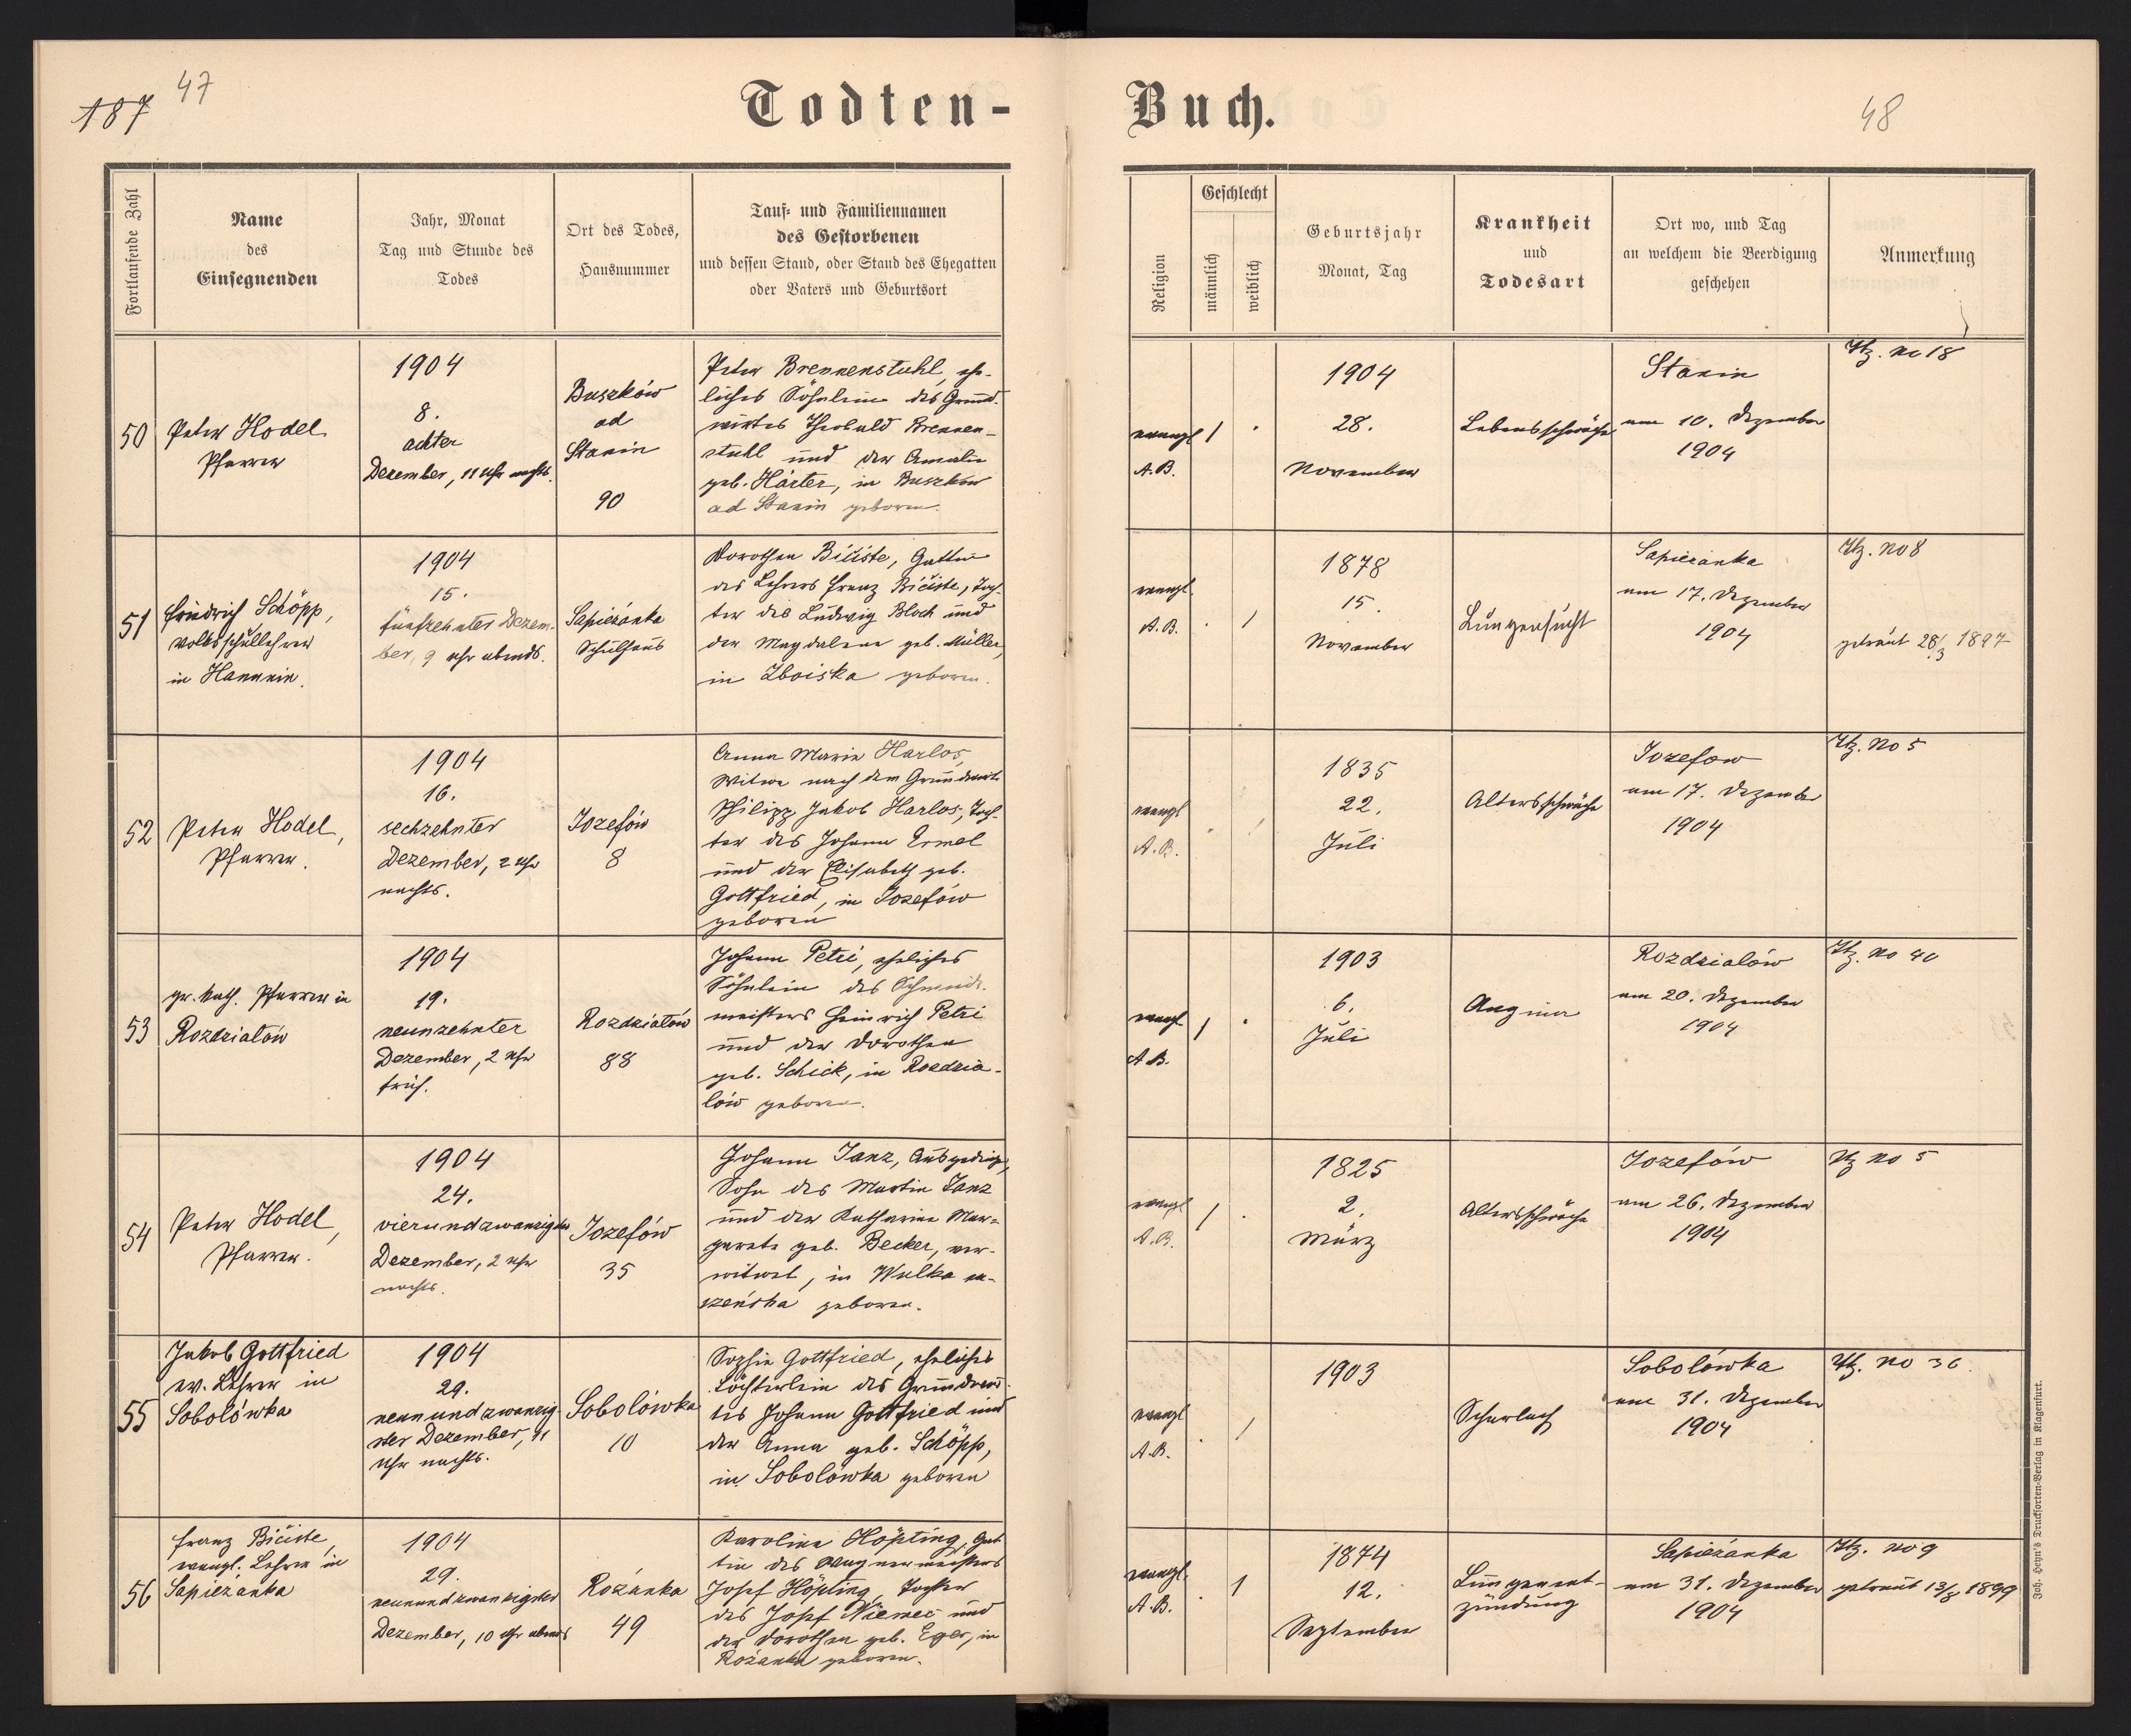 187 47
Todten-
Buch.
48
Fortlaufende Zahl
Name
des
Einsegnenden
Jahr, Monat
Tag und Stunde des
Todes
Ort des Todes,
Hausnummer
Tauf- und Familiennamen
des Gestorbenen
und dessen Stand, oder Stand des Ehegatten
oder Vaters und Geburtsort
Religion
Geschlecht
männlich
weiblich
Geburtsjahr
Monat, Tag
Krankheit
und
Todesart
Ort wo, und Tag
an welchem die Beerdigung
geschehen
Anmerkung
50
Peter Hodel
Pfarrer
1904
8.
achter
Dezember, 11 Uhr nachts.
Buszków
ad
Stanin
90
Peter Brennenstuhl, ehe-
liches Söhnlein des Grund-
wirtes Theobald Brennen-
stuhl und der Amalie
geb. Härter, in Buszków
ad Stanin geboren.
evangl
A.B.
1
.
1904
28.
November
Lebensschwäche
Stanin
am 10. Dezember
1904
Hz. no 18
51
Friedrich Schöpp,
Volksschullehrer
in Hanunin.
1904
15.
fünfzehnter Dezem-
ber, 9 Uhr abends.
Sapieżanka
Schulhaus
Dorothea Bičiste, Gattin
des Lehrers Franz Bičiste, Toch-
ter des Ludwig Bloch und
der Magdalena geb. Müller,
in Zboiska geboren.
evangl.
A.B.
.
1
1878
15.
November
Lungensucht
Sapieżanka
am 17. Dezember
1904
Hz. no 8
getraut 28/3 1897
52
Peter Hodel,
Pfarrer.
1904
16.
sechzehnter
Dezember, 2 Uhr
nachts.
Jozefów
8
Anna Maria Harlos,
Witwe nach dem Grundwirte
Philipp Jakob Harlos, Toch-
ter des Johann Ermel
und der Elisabeth geb.
Gottfried, in Jozefów
geboren
evangl
A.B.
.
1835
22.
Juli
Altersschwäche
Jozefow
am 17. Dezember
1904
Hz. No 5
53
gr. kath. Pfarrer in
Rozdziałów
1904
19.
neunzehnter
Dezember, 2 Uhr
früh.
Rozdziałów
88
Johann Petri, eheliches
Söhnlein des Schmiede-
meisters Heinrich Petri
und der Dorothea
geb. Schick, in Rozdzia-
lów geboren.
evangl
A.B.
1
.
1903
6.
Juli
Angina
Rozdzialów
am 20. Dezember
1904
Hz. no 40
54
Peter Hodel,
Pfarrer.
1904
24.
vierundzwanzigster
Dezember, 2 Uhr
nachts.
Jozefów
35
Johann Janz, Ausgedinger,
Sohn des Martin Janz
und der Katharina Mar-
gareta geb. Becker, ver-
witwet, in Wulka
geboren.
evangl
A.B.
1
.
1825
2.
März
Altersschwäche
Jozefów
am 26. Dezember
1904
Hz no 5
55
Jakob Gottfried
ev. Lehrer in
Sobolówka
1904
29.
neunundzwanzig-
ster Dezember, 11
Uhr nachts.
Sobolówka
10
Sophie Gottfried, eheliches
Töchterlein des Grundwir-
tes Johann Gottfried und
der Anna geb. Schöpp,
in Sobolówka geboren
evangl
A.B.
.
1
1903
Scharlach
Sobolówka
am 31. Dezember
1904
Hz. no 36.
56
Franz Bičiste,
evangl. Lehrer in
Sapieżanka
1904
29.
neunundzwanzigster
Dezember, 10 Uhr abends
Rożanka
49
Karolina Höpting, Gat-
tin des Wagnermeisters
Josef Höpting, Tochter
des Josef Niemec und
der Dorothea geb. Eger, in
Rożanka geboren.
evangl.
A.B.
.
1
1874
12.
September
Lungenent-
zündung
Sapieżanka
am 31. Dezember
1904
Hz. no 9
getraut 13/8 1899
Joh. Heyn's Drucksorten-Verlag in Klagenfurt.